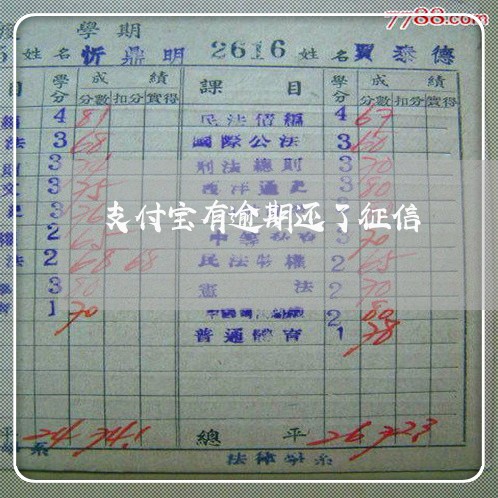 7788.com
學期
5 姓名 忻鼎明 2616 姓名 賈泰德
目 學分 成績 課目 學分 成績
分數 扣分 實得 分數 扣分 實得
4 81 民法債編 4 67
法 3 68 國際公法 3 60
3 刑法總則 3 70
3 75 西洋通史 3 80
3 76
支付宝有逾期还了征信
2 65 70
法 2 68 68 民法物權 2 65
3 80 憲法 2 70
1 70 2 80
普通體育 1 78
平 24 74.1 總平 26 72.3
系 法律學系